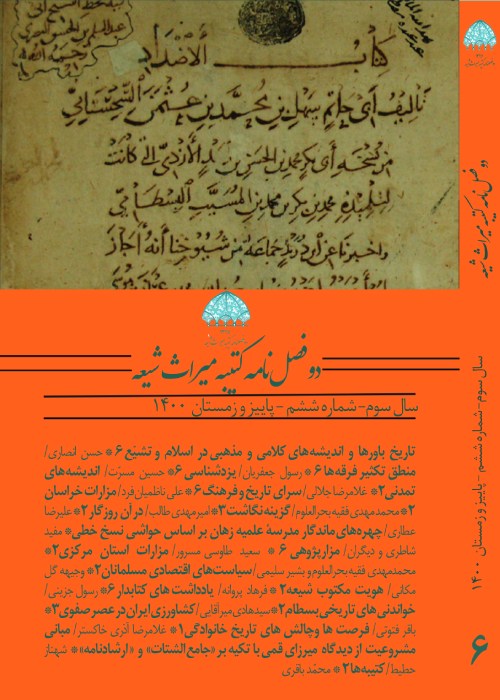 كتاب الأضداد
تأليف أبي حاتم سهل بن محمد بن عثمن السجستاني
من نسخة أبي بكر محمد بن الحسن بن دريد الأزدي التي كانت
لتلميذه محمد بن بكر بن محمد بن المسيب البسطامي
واخبرنا عن ابن دريد جماعة من شيوخنا أنه أجاز
دو فصل نامه کتیبه میراث شیعه
سال سوم-شماره ششم - پاییز و زمستان ۱۴۰۰
تاریخ باورها و اندیشه‌های کلامی و مذهبی در اسلام و تشیّع ۶/ حسن انصاری/
منطق تکثیر فرقه‌ها ۶/ رسول جعفریان/ یزدشناسی ۶/ حسین مسرّت/ اندیشه‌های
تمدنی ۲/ غلامرضا جلالی/ سرای تاریخ و فرهنگ ۶/ علی ناظمیان‌فرد/ مزارات خراسان
۲/ محمدمهدی فقیه بحرالعلوم/ گزینه نگاشت ۳/ امیرمهدی طالب/ در آن روزگار ۲/ علیرضا
عطاری/ چهره‌های ماندگار مدرسهٔ علمیه زهان بر اساس حواشی نسخ خطی/ مفید
شاطری و دیگران/ مزارپژوهی ۶/ سعید طاوسی مسرور/ مزارات استان مرکزی ۲/
محمدمهدی فقیه بحرالعلوم و بشیر سلیمی/ سیاست‌های اقتصادی مسلمانان ۲/ وجیهه گل
مکانی/ هویت مکتوب شیعه ۲/ فرهاد پروانه/ یادداشت‌های کتابدار ۶/ رسول جزینی/
خواندنی‌های تاریخی بسطام ۲/ سیدهادی میرآقایی/ کشاورزی ایران در عصر صفوی ۳/
باقر فتونی/ فرصت ها و چالش های تاریخ خانوادگی ۱/ غلامرضا آذری خاکستر/ مبانی
مشروعیت از دیدگاه میرزای قمی با تکیه بر «جامع الشتات» و «ارشادنامه»/ شهناز
خطیط/ کتیبه‌ها ۲/ محمّد باقری
دو فصل نامه کتیبه میراث شیعه
سال سوم-شماره ششم - پاییز و زمستان ۱۴۰۰
۶